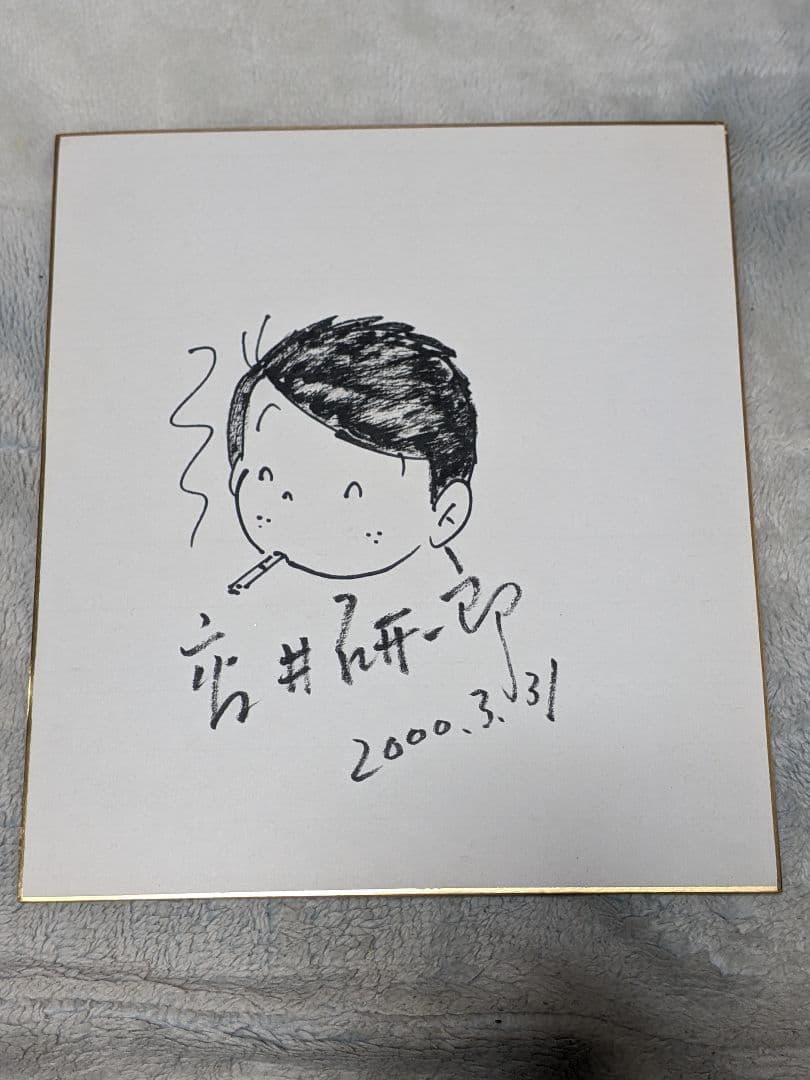 高井研一郎
2000.3.31